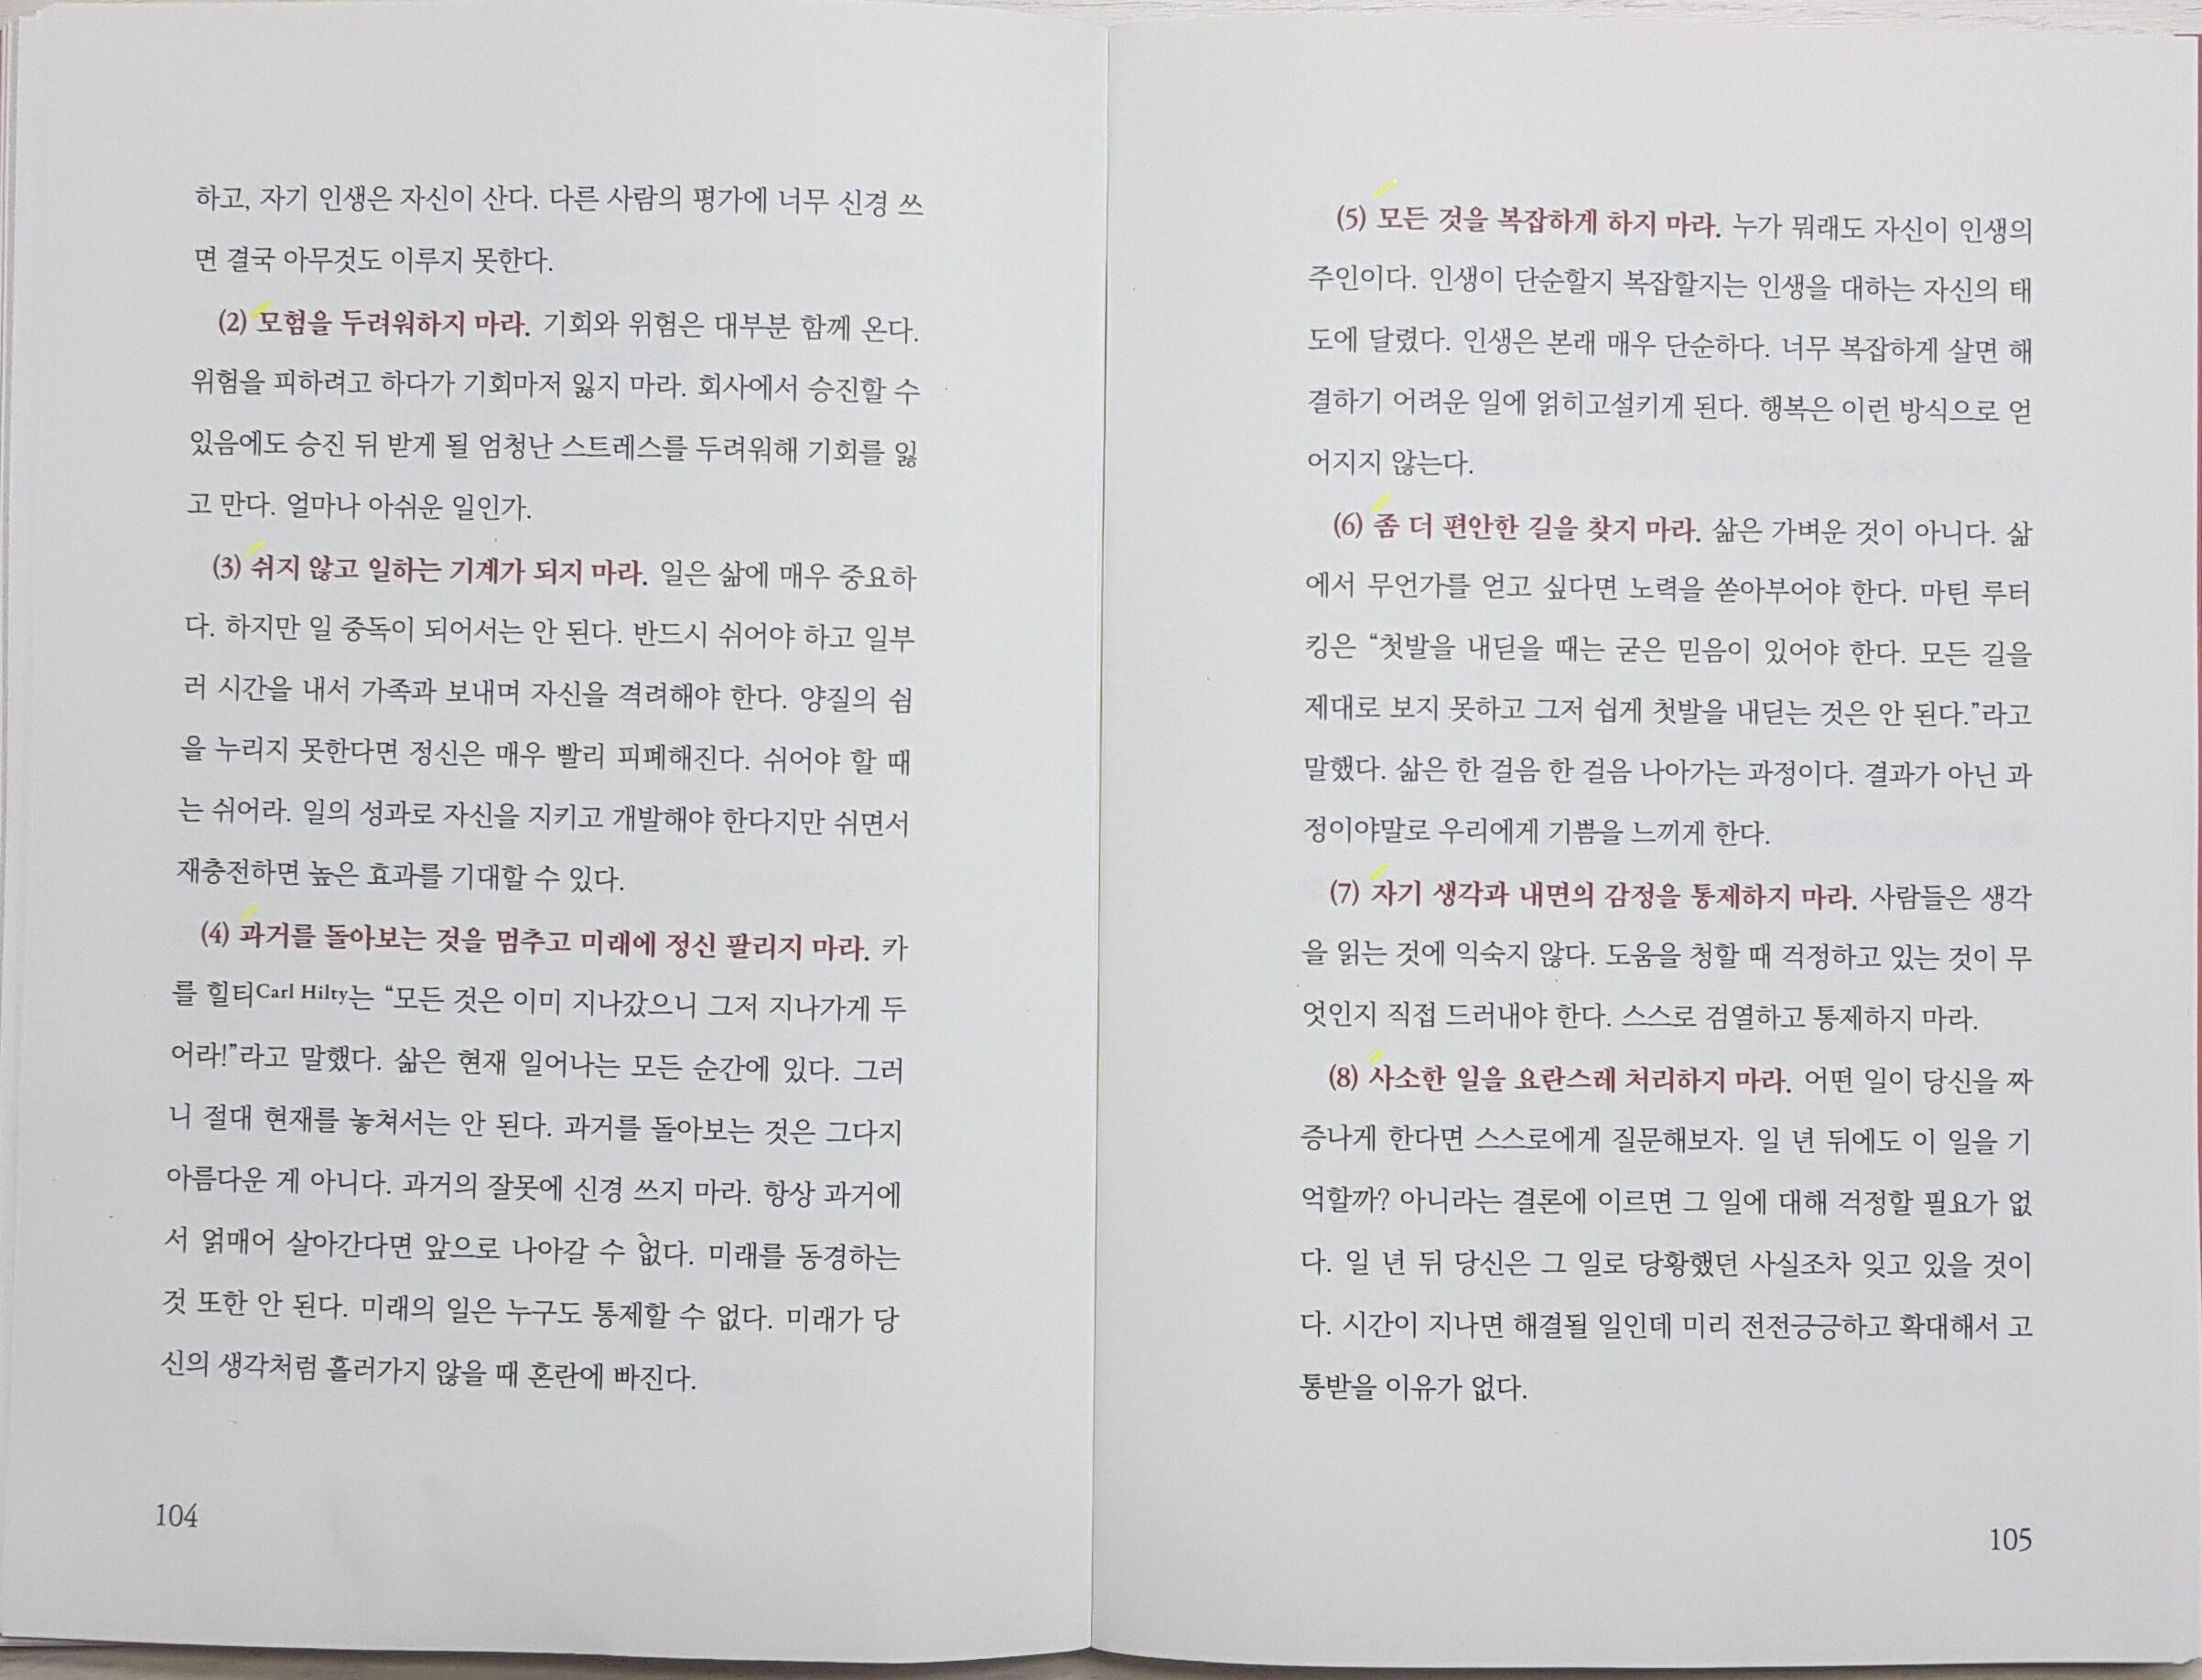 하고, 자기 인생은 자신이 산다. 다른 사람의 평가에 너무 신경 쓰
면 결국 아무것도 이루지 못한다.
(2) 모험을 두려워하지 마라. 기회와 위험은 대부분 함께 온다.
위험을 피하려고 하다가 기회마저 잃지 마라. 회사에서 승진할 수
있음에도 승진 뒤 받게 될 엄청난 스트레스를 두려워해 기회를 잃
고 만다. 얼마나 아쉬운 일인가.
(3) 쉬지 않고 일하는 기계가 되지 마라. 일은 삶에 매우 중요하
다. 하지만 일 중독이 되어서는 안 된다. 반드시 쉬어야 하고 일부
러 시간을 내서 가족과 보내며 자신을 격려해야 한다. 양질의 쉼
을 누리지 못한다면 정신은 매우 빨리 피폐해진다. 쉬어야 할 때
는 쉬어라. 일의 성과로 자신을 지키고 개발해야 한다지만 쉬면서
재충전하면 높은 효과를 기대할 수 있다.
(4) 과거를 돌아보는 것을 멈추고 미래에 정신 팔리지 마라. 카
를 힐티Carl Hilty는 “모든 것은 이미 지나갔으니 그저 지나가게 두
어라!”라고 말했다. 삶은 현재 일어나는 모든 순간에 있다. 그러
니 절대 현재를 놓쳐서는 안 된다. 과거를 돌아보는 것은 그다지
아름다운 게 아니다. 과거의 잘못에 신경 쓰지 마라. 항상 과거에
서 얽매어 살아간다면 앞으로 나아갈 수 없다. 미래를 동경하는
것 또한 안 된다. 미래의 일은 누구도 통제할 수 없다. 미래가 당
신의 생각처럼 흘러가지 않을 때 혼란에 빠진다.
104
(5) 모든 것을 복잡하게 하지 마라. 누가 뭐래도 자신이 인생의
주인이다. 인생이 단순할지 복잡할지는 인생을 대하는 자신의 태
도에 달렸다. 인생은 본래 매우 단순하다. 너무 복잡하게 살면 해
결하기 어려운 일에 얽히고설키게 된다. 행복은 이런 방식으로 얻
어지지 않는다.
(6) 좀 더 편안한 길을 찾지 마라. 삶은 가벼운 것이 아니다. 삶
에서 무언가를 얻고 싶다면 노력을 쏟아부어야 한다. 마틴 루터
킹은 “첫발을 내딛을 때는 굳은 믿음이 있어야 한다. 모든 길을
제대로 보지 못하고 그저 쉽게 첫발을 내딛는 것은 안 된다.”라고
말했다. 삶은 한 걸음 한 걸음 나아가는 과정이다. 결과가 아닌 과
정이야말로 우리에게 기쁨을 느끼게 한다.
(7) 자기 생각과 내면의 감정을 통제하지 마라. 사람들은 생각
을 읽는 것에 익숙지 않다. 도움을 청할 때 걱정하고 있는 것이 무
엇인지 직접 드러내야 한다. 스스로 검열하고 통제하지 마라.
(8) 사소한 일을 요란스레 처리하지 마라. 어떤 일이 당신을 짜
증나게 한다면 스스로에게 질문해보자. 일 년 뒤에도 이 일을 기
억할까? 아니라는 결론에 이르면 그 일에 대해 걱정할 필요가 없
다. 일 년 뒤 당신은 그 일로 당황했던 사실조차 잊고 있을 것이
다. 시간이 지나면 해결될 일인데 미리 전전긍긍하고 확대해서 고
통받을 이유가 없다.
105